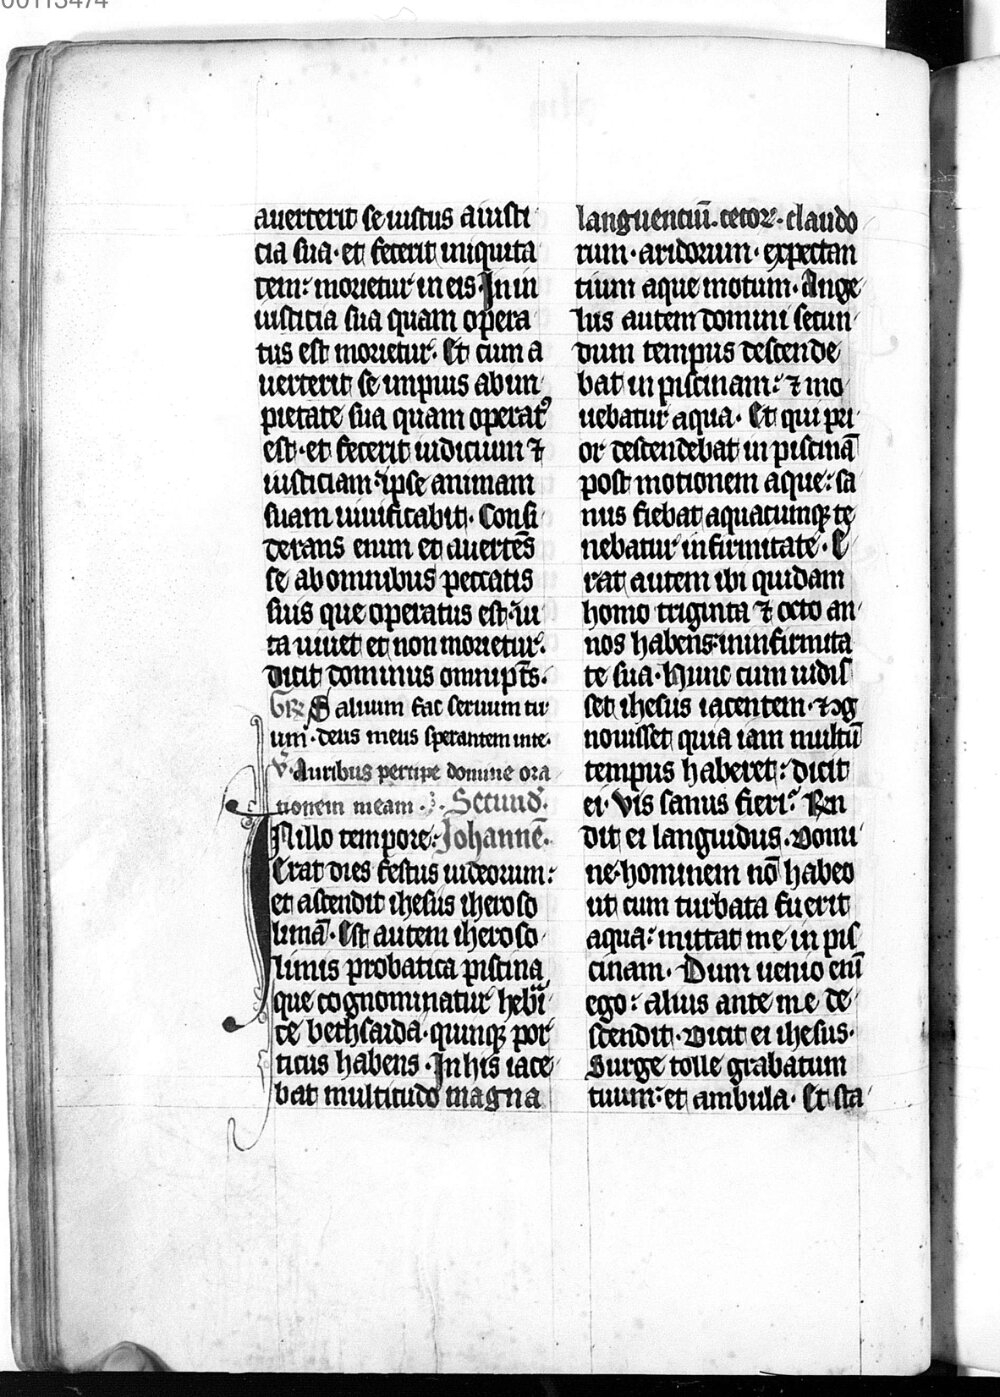 00113474
auerterit se iustus a iusti
cia sua · et fecerit iniquita
tem : morietur in eis · In in
iusticia sua quam opera
tus est morietur · Et cum a
uerterit se impius ab im
pietate sua quam operatꝰ
est · et fecerit iudicium ⁊
iusticiam : ipse animam
suam uiuificabit · Consi
derans enim et auertēs
se ab omnibus peccatis
suis que operatus est · ui
ta uiuet et non morietur ·
dicit dominus omnipt̄s ·
Gr̄ Saluum fac seruum tu
um · deus meus sperantem in te ·
v̄ · Auribus percipe domine ora
tionem meam · Secund̄ ·
In illo tempore : Johannē ·
Erat dies festus iudeorum :
et ascendit ihesus iheroso
limā · Est autem iheroso
limis probatica piscina
que cognominatur hebͥi
ce bethsaida · quinqꝫ por
ticus habens · In his iace
bat multitudo magna
languenciū · cecoꝝ · claudo
rum · aridorum · expectan
tium aque motum · Ange
lus autem domini secun
dum tempus descende
bat in piscinam : ⁊ mo
uebatur aqua · Et qui pri
or descendebat in piscinā
post motionem aque : sa
nus fiebat a quacumqꝫ te
nebatur infirmitate · E
rat autem ibi quidam
homo triginta ⁊ octo an
nos habens : in infirmita
te sua · Hunc cum uidis
set ihesus iacentem · ⁊ ↄg
nouisset quia iam multū
tempus haberet : dicit
ei · Vis sanus fieri ? Rn̄
dit ei languidus · Domi
ne · hominem nō habeo
ut cum turbata fuerit
aqua : mittat me in pis
cinam · Dum uenio eni̅
ego : alius ante me de
scendit · Dicit ei ihesus ·
Surge tolle grabatum
tuum : et ambula · Et sta